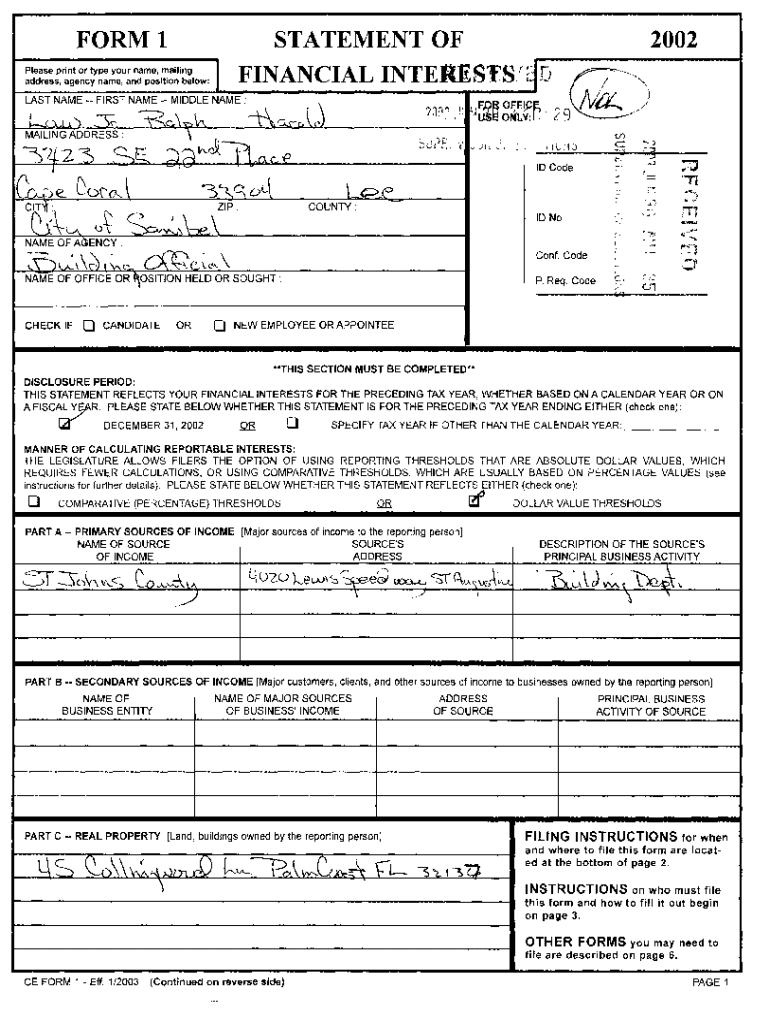 FORM 1 STATEMENT OF 2002
Please print or type your name, mailing
address, agency name, and position below:
FINANCIAL INTERESTS
LAST NAME -- FIRST NAME -- MIDDLE NAME :
FOR OFFICE
USE ONLY:
29
Law Jr Ralph Harold
MAILING ADDRESS :
3423 SE 22nd Place
ID Code
RECEIVED
Cape Coral 33904 Lee
CITY : ZIP : COUNTY :
City of Sanibel
ID No
NAME OF AGENCY :
Building Official
Conf. Code
NAME OF OFFICE OR POSITION HELD OR SOUGHT :
P. Req. Code
CHECK IF CANDIDATE OR NEW EMPLOYEE OR APPOINTEE
**THIS SECTION MUST BE COMPLETED**
DISCLOSURE PERIOD:
THIS STATEMENT REFLECTS YOUR FINANCIAL INTERESTS FOR THE PRECEDING TAX YEAR, WHETHER BASED ON A CALENDAR YEAR OR ON
A FISCAL YEAR. PLEASE STATE BELOW WHETHER THIS STATEMENT IS FOR THE PRECEDING TAX YEAR ENDING EITHER (check one):
DECEMBER 31, 2002 OR SPECIFY TAX YEAR IF OTHER THAN THE CALENDAR YEAR:
MANNER OF CALCULATING REPORTABLE INTERESTS:
THE LEGISLATURE ALLOWS FILERS THE OPTION OF USING REPORTING THRESHOLDS THAT ARE ABSOLUTE DOLLAR VALUES, WHICH
REQUIRES FEWER CALCULATIONS, OR USING COMPARATIVE THRESHOLDS, WHICH ARE USUALLY BASED ON PERCENTAGE VALUES (see
instructions for further details). PLEASE STATE BELOW WHETHER THIS STATEMENT REFLECTS EITHER (check one):
COMPARATIVE (PERCENTAGE) THRESHOLDS OR DOLLAR VALUE THRESHOLDS
PART A -- PRIMARY SOURCES OF INCOME [Major sources of income to the reporting person]
NAME OF SOURCE SOURCE'S DESCRIPTION OF THE SOURCE'S
OF INCOME ADDRESS PRINCIPAL BUSINESS ACTIVITY
ST Johns County 4020 Lewis Speedway, ST Augustine Building Dept.
PART B -- SECONDARY SOURCES OF INCOME [Major customers, clients, and other sources of income to businesses owned by the reporting person]
NAME OF NAME OF MAJOR SOURCES ADDRESS PRINCIPAL BUSINESS
BUSINESS ENTITY OF BUSINESS' INCOME OF SOURCE ACTIVITY OF SOURCE
PART C -- REAL PROPERTY [Land, buildings owned by the reporting person]
45 Collingwood Ln Palm Coast FL 32137
FILING INSTRUCTIONS for when
and where to file this form are locat-
ed at the bottom of page 2.
INSTRUCTIONS on who must file
this form and how to fill it out begin
on page 3.
OTHER FORMS you may need to
file are described on page 6.
CE FORM 1 - Eff. 1/2003 (Continued on reverse side) PAGE 1